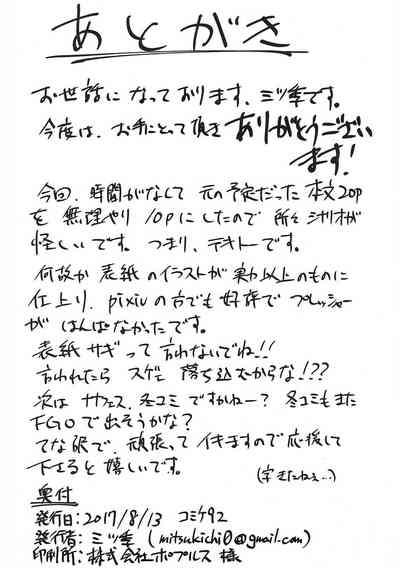 あとがき
お世話になっております、ミツ季です。
今度は、お手にとって頂きありがとうござい
ます!
今回、時間がなくて 元の予定だった 本文20p
を 無理やり 10pにしたので 所々シナリオが
怪しいです。つまり、テキトーです。
何故か 表紙のイラストが 実力以上のものに
仕上り、pixivの方でも好評で プレッシャー
が はんぱなかったです。
表紙サギって言わないでね!!
言われたら スゲェ 落ち込むからな!??
次は サンフェス、冬コミ ですかねー? 冬コミもまた
FGOで出そうかな?
てな訳で、頑張ってイキますので応援して
下さると嬉しいです。
(字きたねぇ…)
奥付
発行日:2017/8/13 コミケ92
発行者:ミツ季 (mitsukichi0@gmail.com)
印刷所:株式会社ポプルス 様